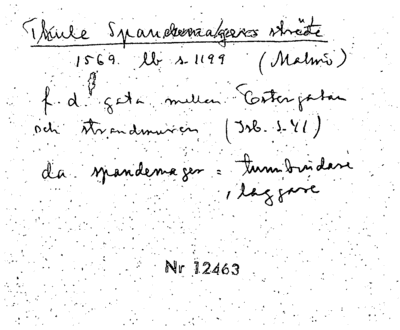 Thule Spandemagers stræte
1569. lb s. 1199 (Malmö)
f. d. gata mellan Östergatan
och strandmuren (Isb. s. 41)
da spandemager = tunnbindare
, laggare
Nr 12463